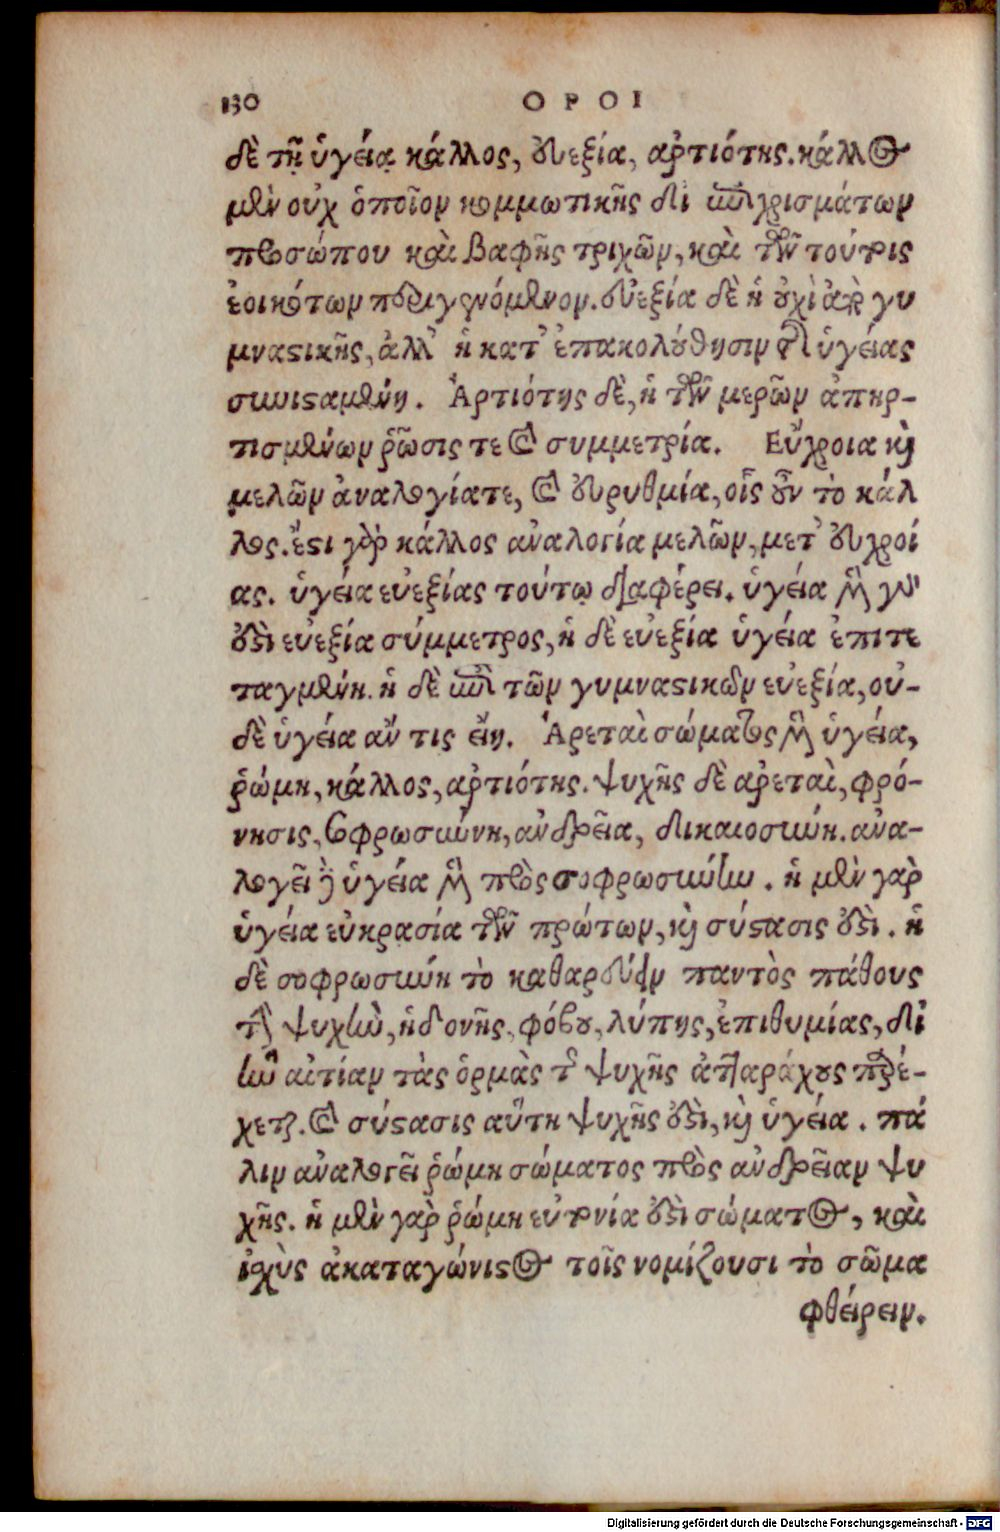 130 ΟΡΟΙ
δὲ τῇ ὑγείᾳ κάλλος, εὐεξία, ἀρτιότης. κάλλος
μὲν οὐχ ὁποῖον κομμωτικῆς διʼ ἐπιχρισμάτων
προσώπου καὶ βαφῆς τριχῶν, καὶ τῶν τούτοις
ἐοικότων περιγινόμενον. εὐεξία δὲ ἡ οὐχὶ ἀπὸ γυ
μναστικῆς, ἀλλʼ ἡ κατʼ ἐπακολούθησιν τῆς ὑγείας
συνισταμένη. Ἀρτιότης δὲ, ἡ τῶν μερῶν ἀπηρ-
τισμένων ῥῶσις τε καὶ συμμετρία. Εὔχροια καὶ
μελῶν ἀναλογίατε, καὶ εὐρυθμία, οἷς οὖν τὸ κάλ
λος. ἔστι γὰρ κάλλος ἀναλογία μελῶν, μετʼ εὐχροί
ας. ὑγεία εὐεξίας τούτῳ διαφέρει. ὑγεία μὲν γάρ
ἐστι εὐεξία σύμμετρος, ἡ δὲ εὐεξία ὑγεία ἐπιτε
ταγμένη. ἡ δὲ ἐπὶ τῶν γυμναστικῶν εὐεξία, οὐ-
δὲ ὑγεία ἄν τις εἴη. Ἀρεταὶ σώματος μὲν ὑγεία,
ῥώμη, κάλλος, ἀρτιότης. ψυχῆς δὲ ἀρεταὶ, φρό-
νησις, σωφρωσύνη, ἀνδρεία, δικαιοσύνη. ἀνα-
λογεῖ δὲ ὑγεία μὲν πρὸς σοφρωσύνην. ἡ μὲν γὰρ
ὑγεία εὐκρασία τῶν πρώτων, καὶ σύστασις ἐστὶ. ἡ
δὲ σοφρωσύνη τὸ καθαρεύειν παντὸς πάθους
τὴν ψυχὴν, ἡδονῆς, φόβου, λύπης, ἐπιθυμίας, διʼ
ἣν αἰτίαν τὰς ὁρμὰς τῆς ψυχῆς ἀταράχους παρέ-
χεται. καὶ σύστασις αὕτη ψυχῆς ἐστὶ, καὶ ὑγεία. πά
λιν ἀναλογεῖ ῥώμη σώματος πρὸς ἀνδρείαν ψυ
χῆς. ἡ μὲν γὰρ ῥώμη εὐτονία ἐστὶ σώματος, καὶ
ἰσχὺς ἀκαταγώνιστος τοῖς νομίζουσι τὸ σῶμα
φθείρειν.
Digitalisierung gefördert durch die Deutsche Forschungsgemeinschaft - DFG